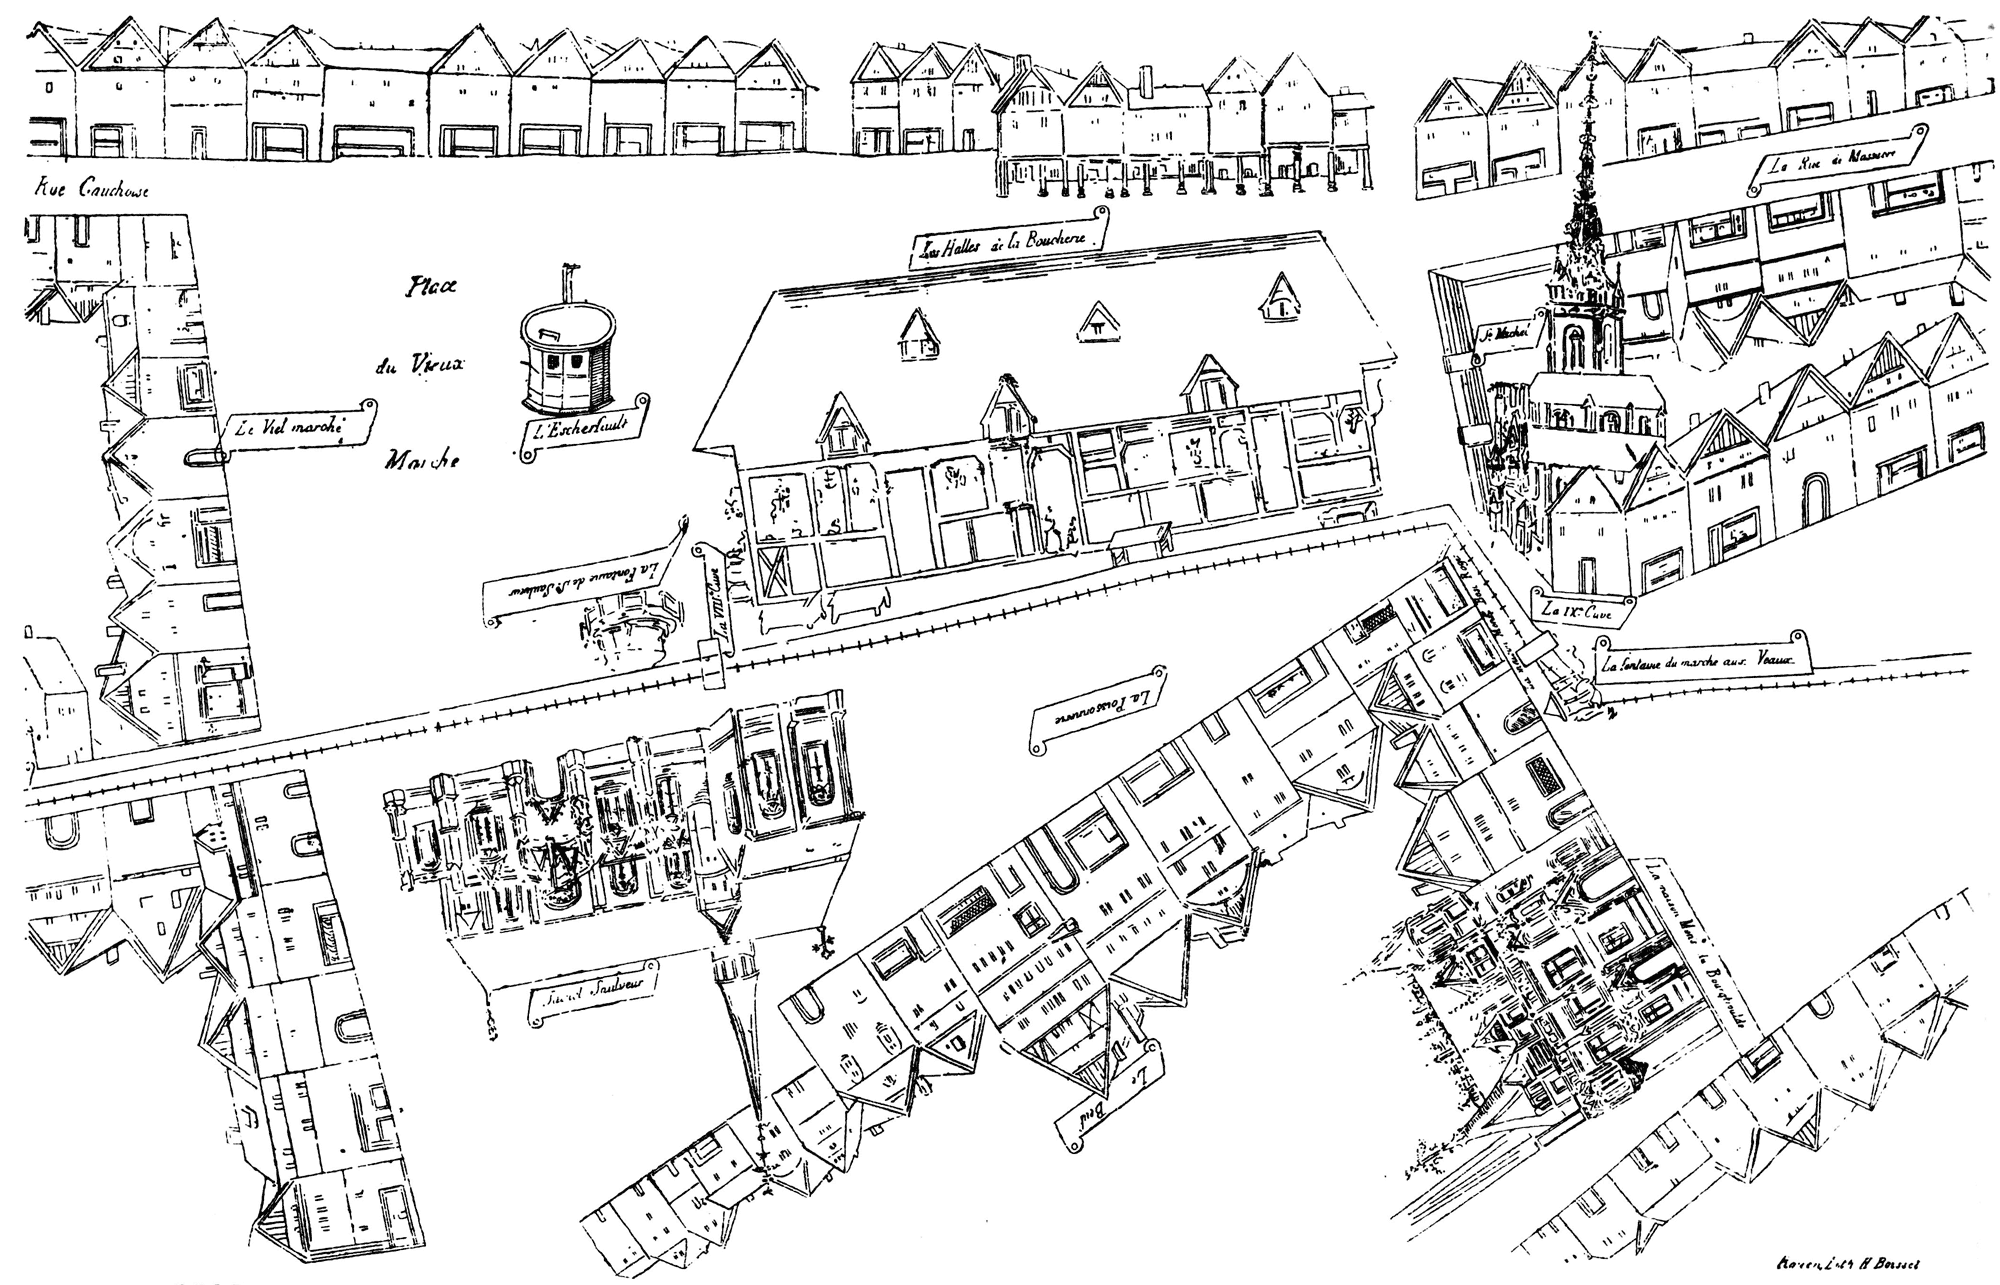 Rue Cauchoise
La Rue de Massacre
Les Halles de la Boucherie
Place
du Vieux
Marche
St Michel
Le Viel marché
L'Escherfault
La Fontaine de St Sauveur
La VIIIe Cuve
La IXe Cuve
La fontaine du marche aux Veaux
La Poissonnerie
Sainct Saulveur
Le
Beid
La maison Mons de Bourgtroulde
Rouen, Lith H Boissel